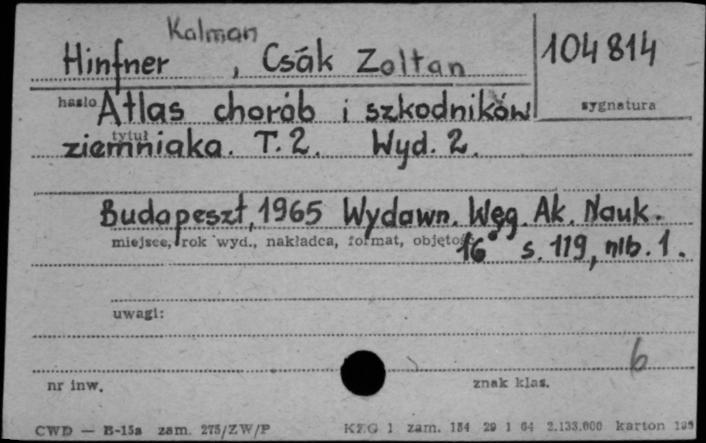 Kalman
Hinfner, Csák Zoltan
104 814
hasło
sygnatura
Atlas chorób i szkodników
tytuł
ziemniaka. T. 2. Wyd. 2.
Budapeszt, 1965 Wydawn. Węg. Ak. Nauk.
miejsce, rok wyd., nakładca, format, objętość
16° s. 119, nlb. 1.
uwagi:
6
nr inw.
znak klas.
CWD — B-15a zam. 275/ZW/P
KZG 1 zam. 184 29 1 64 2.133.000 karton